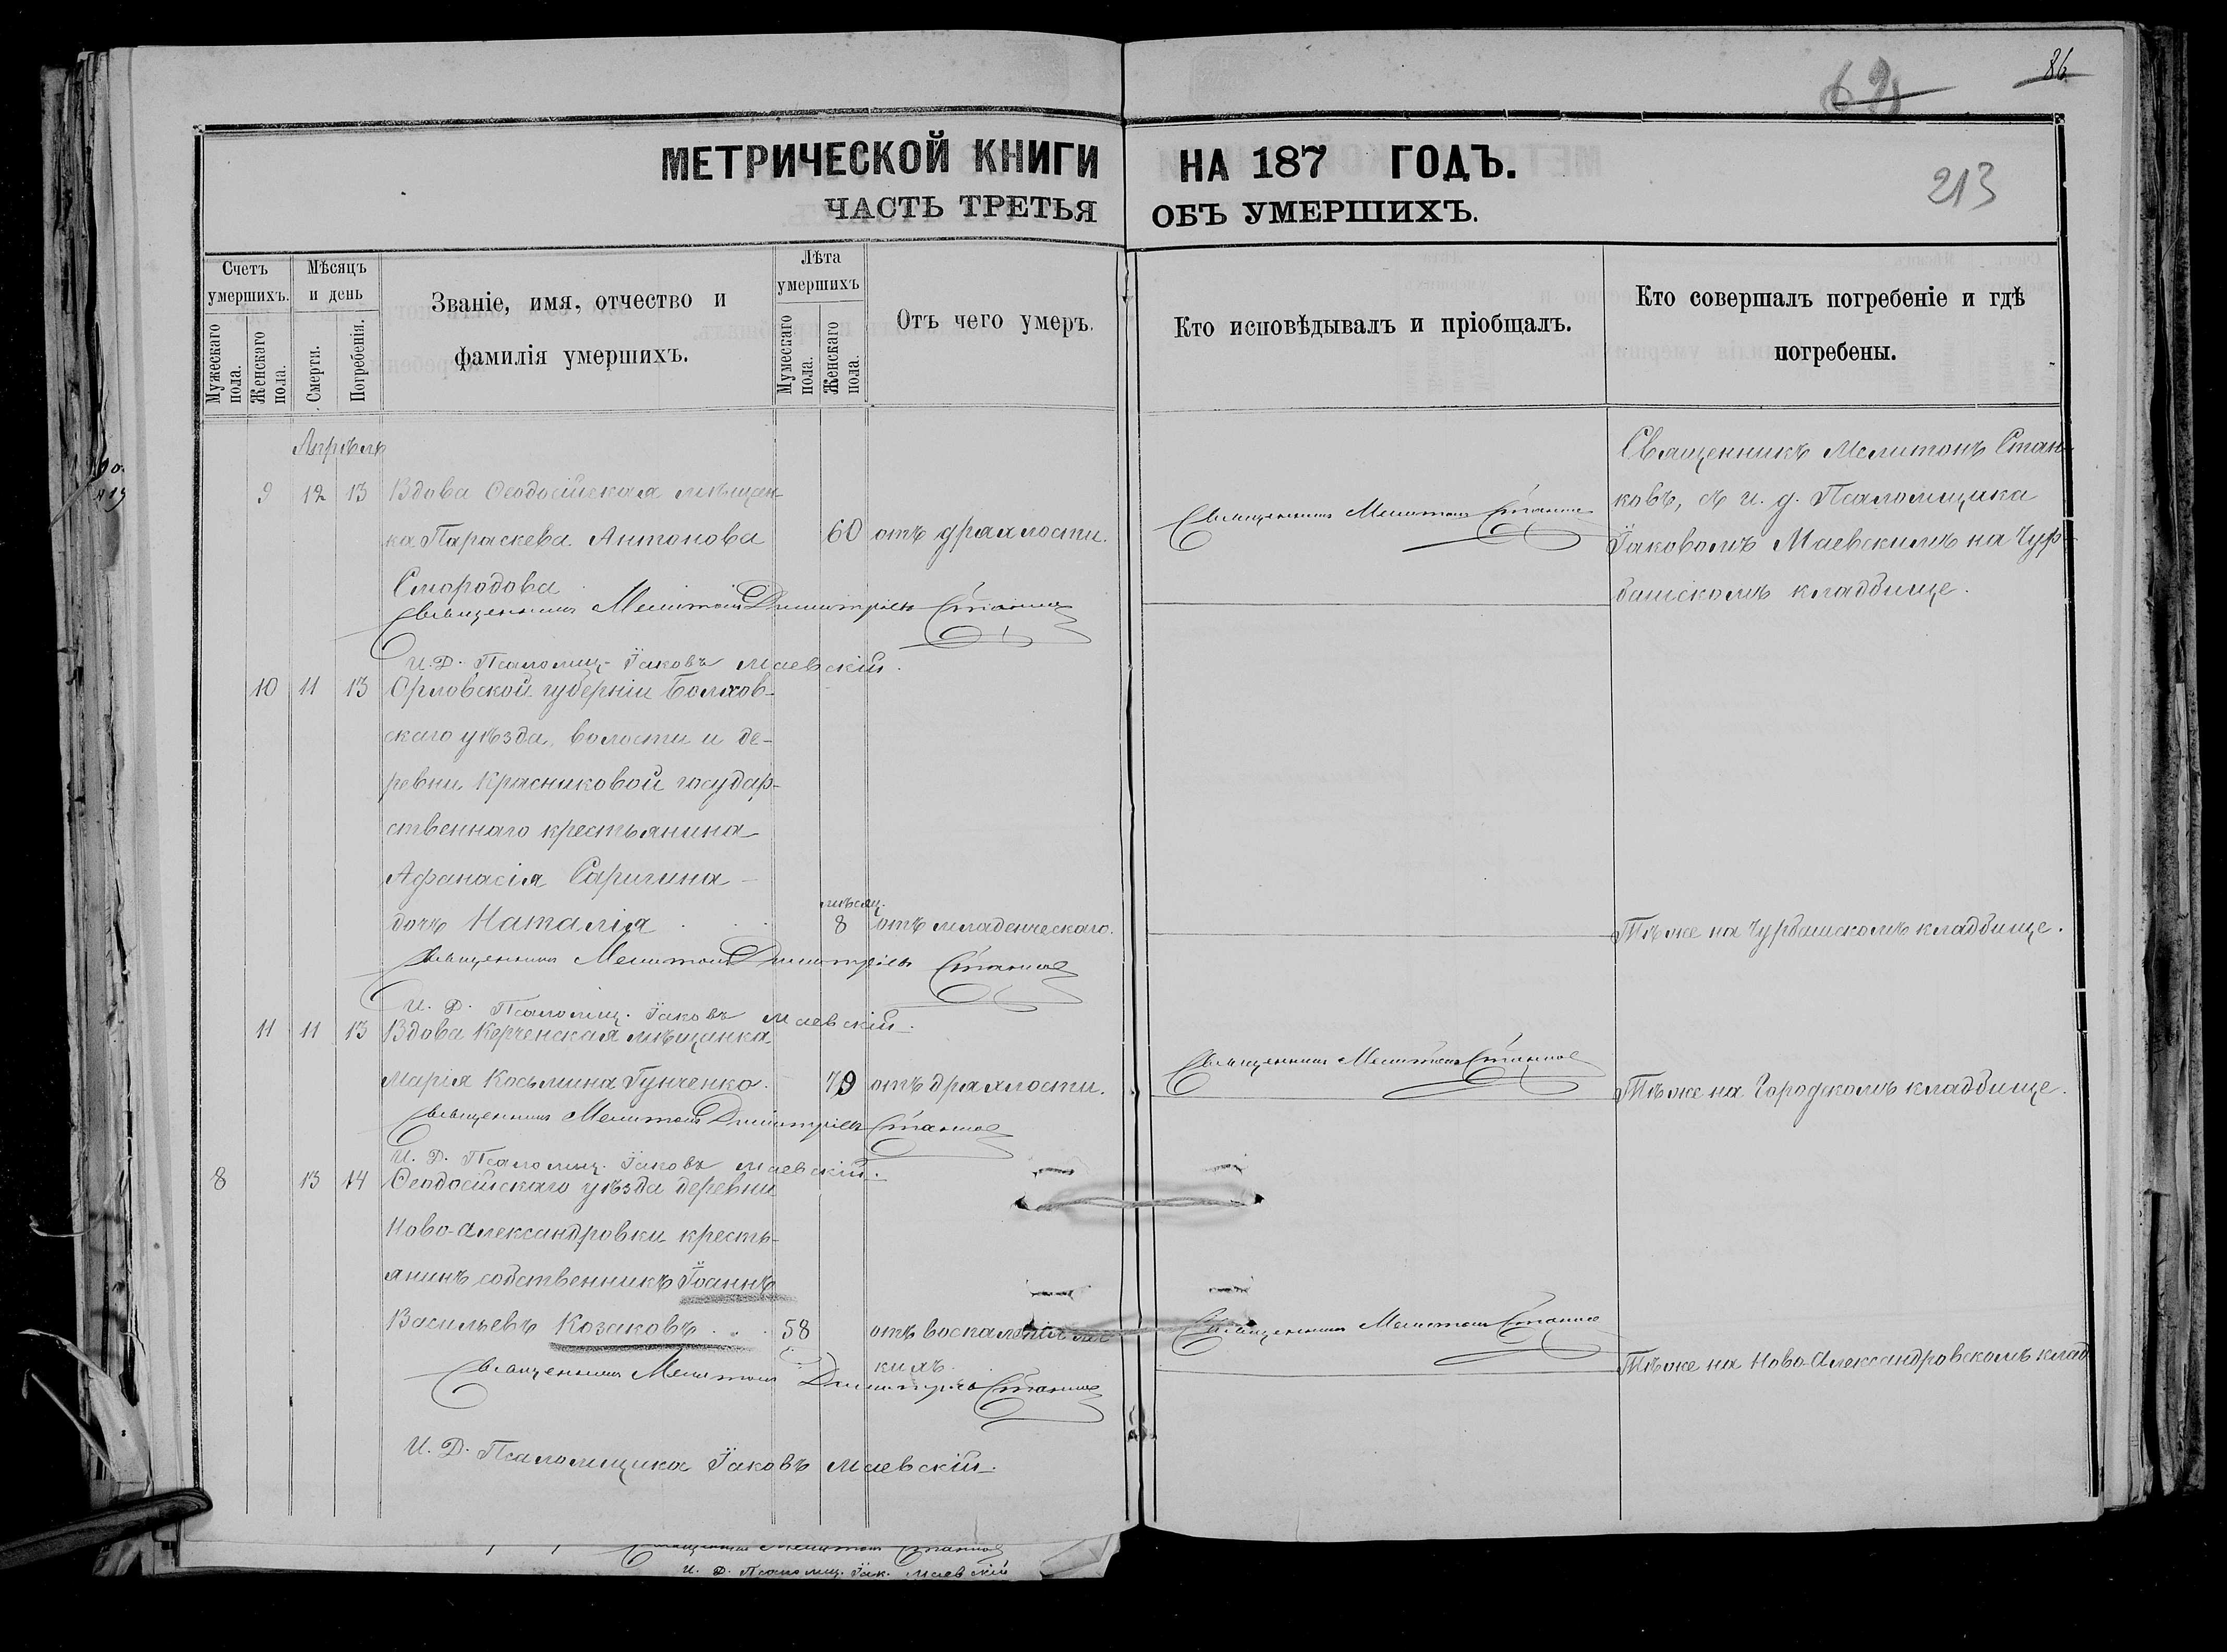 69
86
МЕТРИЧЕСКОЙ КНИГИ НА 187 ГОДЪ.
213
ЧАСТЬ ТРЕТЬЯ ОБЪ УМЕРШИХЪ.
Счетъ умершихъ.
Мужескаго пола.
Женскаго пола.
Мѣсяцъ и день
Смерти.
Погребенія.
Званіе, имя, отчество и
фамилія умершихъ.
Лѣта умершихъ
Мужескаго пола.
Женскаго пола.
Отъ чего умеръ.
Кто исповѣдывалъ и пріобщалъ.
Кто совершалъ погребеніе и гдѣ
погребены.
Апрѣль
Священникъ Мелитонъ Стан-
9 12 13 Вдова Ѳеодосійская мѣщан-
ковъ, съ и. д. Псаломщика
ка Параскева Антонова 60 отъ дряхлости. Священникъ Мелитонъ Станковъ
Іаковомъ Маевскимъ на Чур-
Смородова
башскомъ кладбище.
Священникъ Мелитонъ Димитріевъ Станковъ
И. Д. Псаломщ. Іаковъ Маевскій.
10 11 13 Орловской губерніи Болхов-
скаго уѣзда, волости и де-
ревни Красниковой государ-
ственнаго крестьянина
Афанасія Саригина
мѣсяц.
дочь Наталія 8 отъ младенческаго. Тѣ же на Чурбашскомъ кладбище.
Священникъ Мелитонъ Димитріевъ Станковъ
И. Д. Псаломщ. Іаковъ Маевскій.
11 11 13 Вдова Керченская мѣщанка
Священникъ Мелитонъ Станковъ
Марія Косьмина Гунченко. 79 отъ дряхлости. Тѣ же на Городскомъ кладбище.
Священникъ Мелитонъ Димитріевъ Станковъ
И. Д. Псаломщ. Іаковъ Маевскій.
8 13 14 Ѳеодосійскаго уѣзда деревни
Ново-Александровки кресть-
янинъ собственникъ Іоаннъ
Васильевъ Козаковъ 58 отъ воспаленія лег- Священникъ Мелитонъ Станковъ
кихъ. Тѣ же на Ново-Александровскомъ клад
Священникъ Мелитонъ Димитріевъ Станковъ
И. Д. Псаломщика Іаковъ Маевскій.
Священникъ Мелитонъ Станковъ
И. Д. Псаломщ. Іак. Маевскій